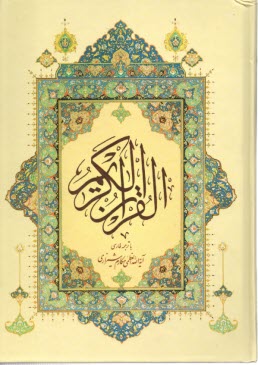 القرآن الكريم
با ترجمه فارسی
آیةالله العظمی مکارم شیرازی